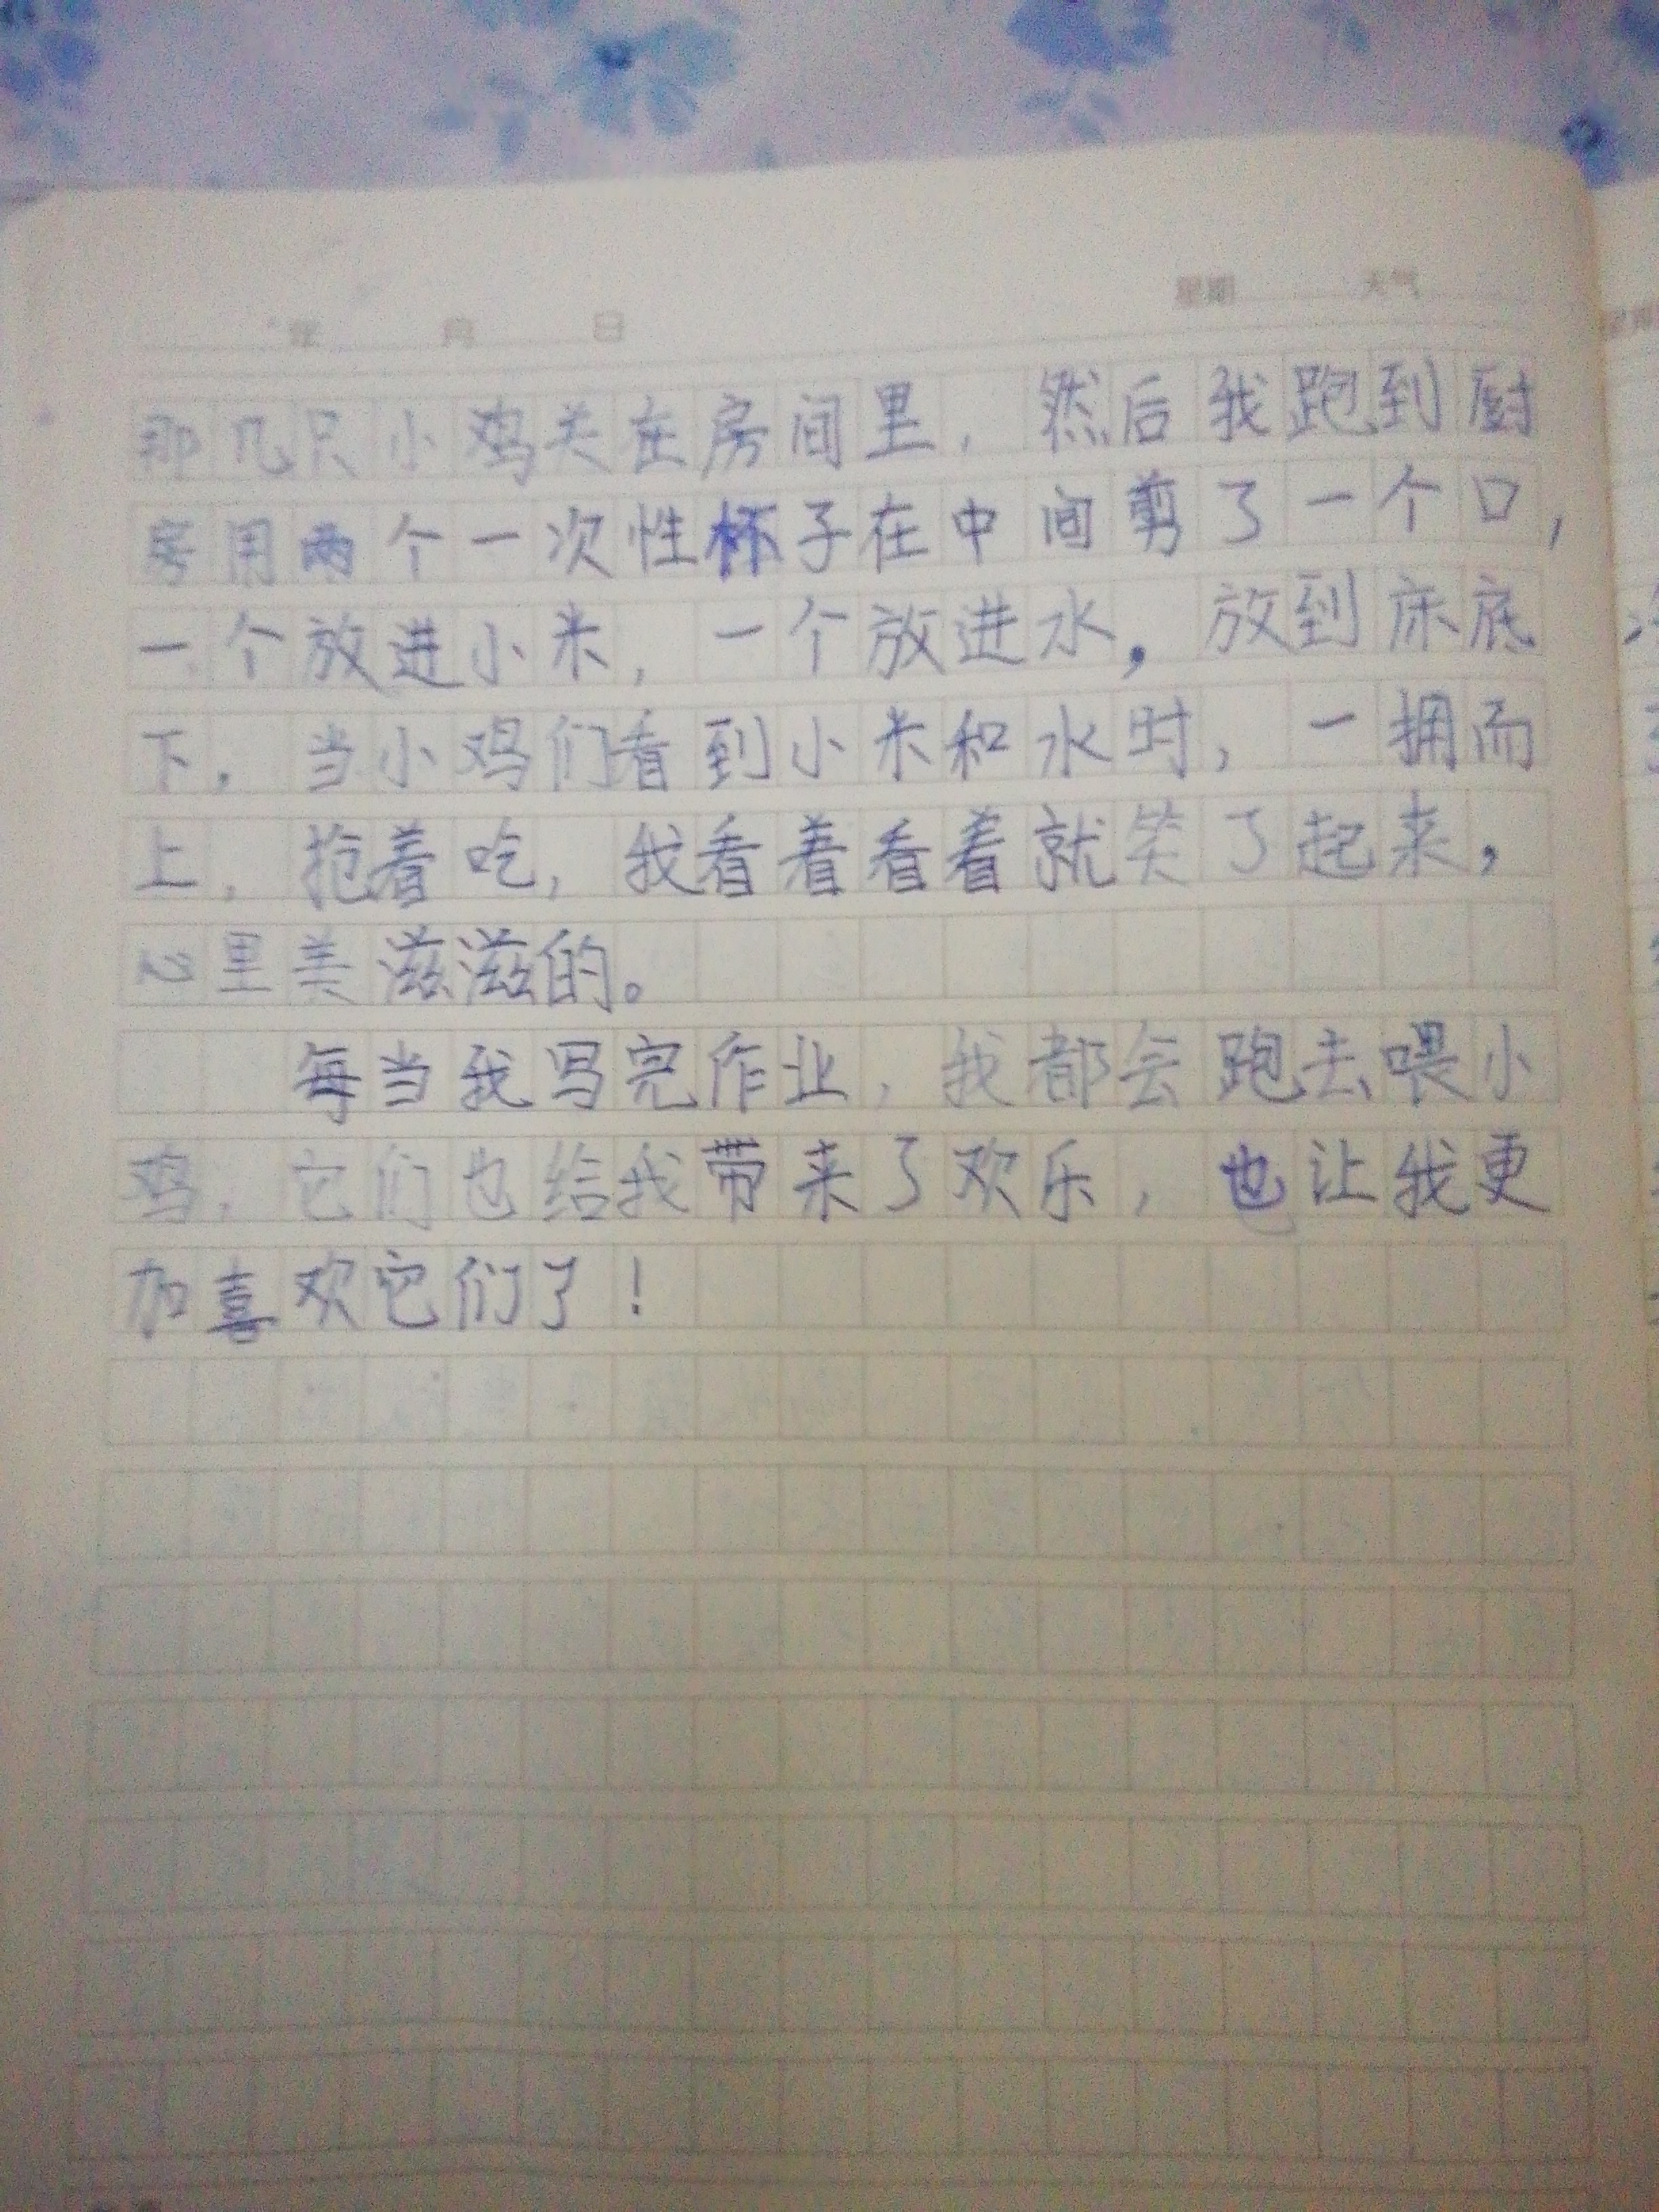 年 月 日 星期 天气
那几只小鸡关在房间里,然后我跑到厨
房用两个一次性杯子在中间剪了一个口,
一个放进小米,一个放进水,放到床底
下,当小鸡们看到小米和水时,一拥而
上,抢着吃,我看着看着就笑了起来,
心里美滋滋的。
每当我写完作业,我都会跑去喂小
鸡,它们也给我带来了欢乐,也让我更
加喜欢它们了!